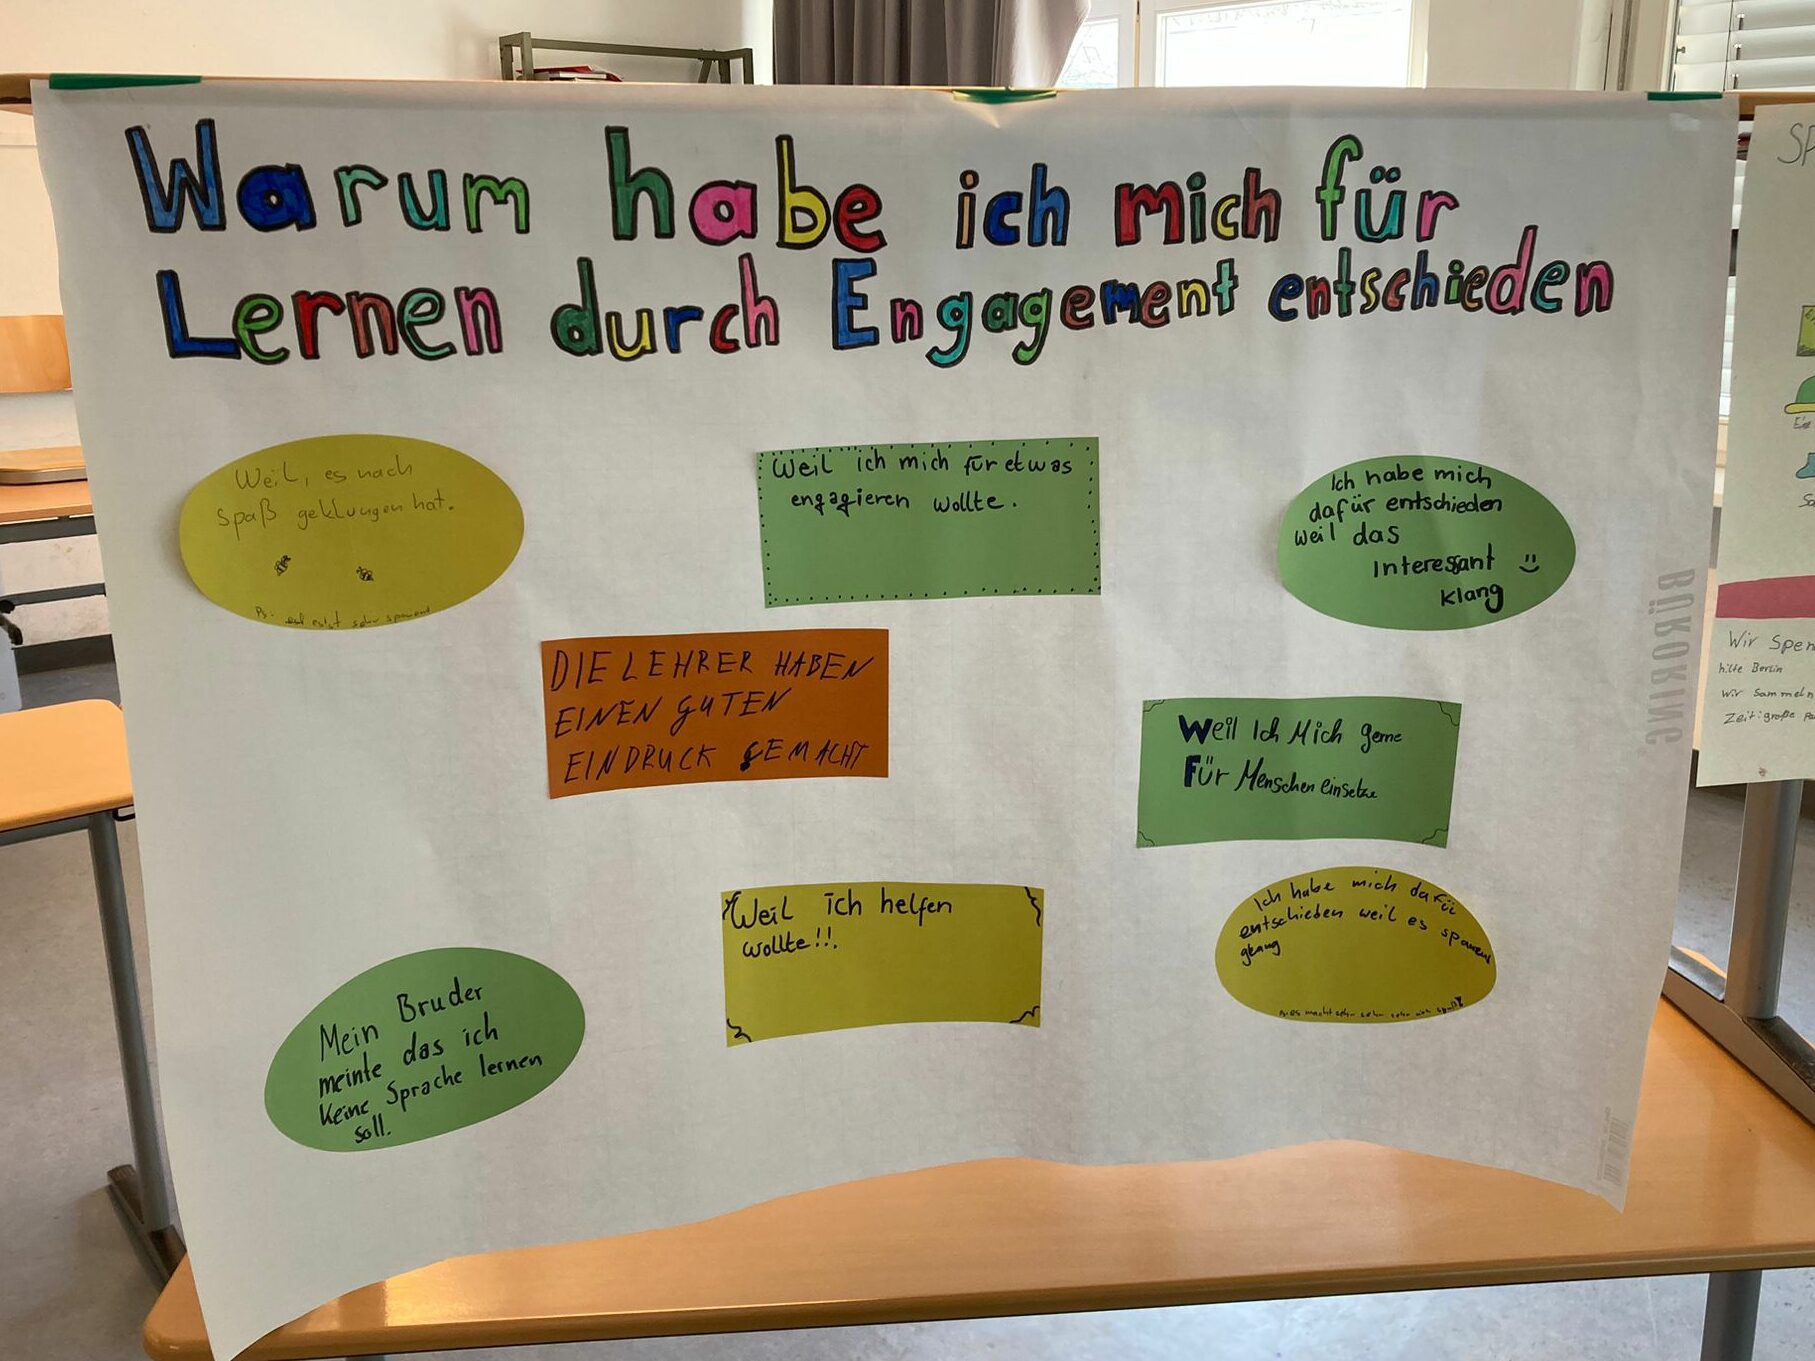 Warum habe ich mich für
Lernen durch Engagement entschieden
Weil, es nach
Spaß geklungen hat.
Weil ich mich für etwas
engagieren wollte.
Ich habe mich
dafür entschieden
weil das
Interessant
klang
DIE LEHRER HABEN
EINEN GUTEN
EINDRUCK GEMACHT
Weil Ich Mich gerne
Für Menschen einsetze
Mein Bruder
meinte das ich
keine Sprache lernen
soll.
Weil ich helfen
wollte!!.
Ich habe mich dafür
entschieden weil es
BÜRORING
Wir Spen
hilfe Berlin
Wir Sammeln
Zeit: große